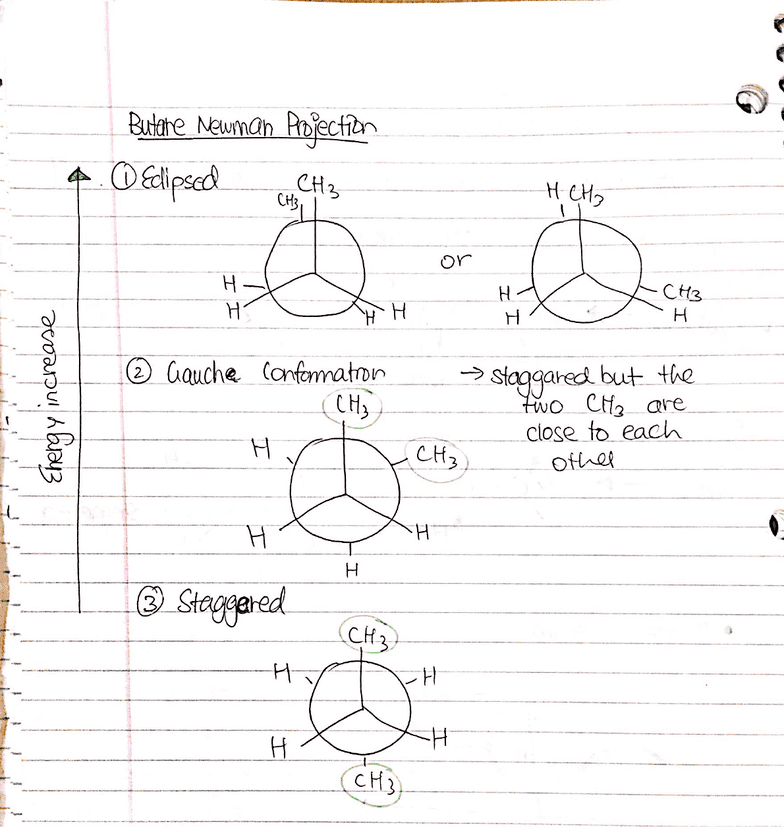 Butane Newman Projection
① Eclipsed
CH3
CH3
H
H
H
H
or
H CH3
H
H
CH3
H
Energy increase
② Gauche Conformation
→ staggared but the
two CH3 are
close to each
other
CH3
H
CH3
H
H
H
③ Staggered
CH3
H
H
H
H
CH3